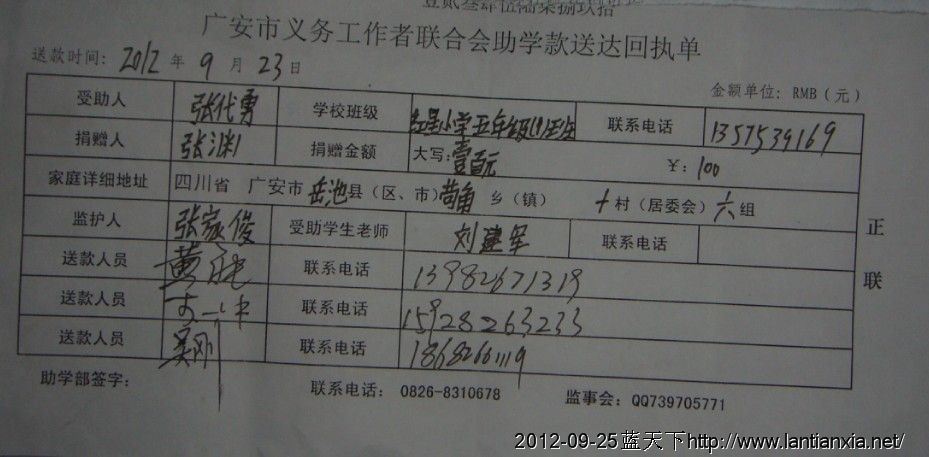 壹贰叁肆伍陆柒捌玖拾
广安市义务工作者联合会助学款送达回执单
送款时间: 2012 年 9 月 23 日
金额单位: RMB（元）
受助人 张代勇 学校班级 小学五年级(1) 联系电话 1357539169
捐赠人 张渊 捐赠金额 大写: 壹百元 ￥: 100
家庭详细地址 四川省 广安市 岳池 县（区、市） 苟角 乡（镇） 十 村（居委会） 六 组
监护人 张家俊 受助学生老师 刘建军 联系电话
送款人员 黄 联系电话 13982671319
送款人员 联系电话 15928263233
送款人员 吴刚 联系电话 18682661119
正联
助学部签字: 联系电话: 0826-8310678 监事会: QQ739705771
2012-09-25蓝天下http://www.lantianxia.net/